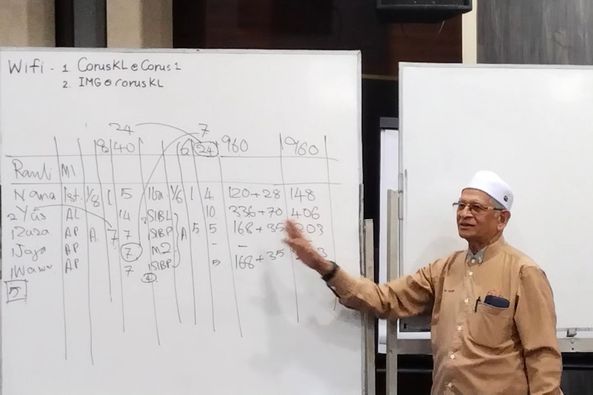 Wifi - 1 CorusKL@Corus1
2. IMG@CorusKL
24 7
8 40 6 24 960 960
Ramli M1
Nama Ist. 1/8 1 5 Iba 1/6 1 4 120+28 148
2 Yus AL 14 SIBL 10 336+70 406
Raza AP A 7 7 SIBP A 5 5 168+35 203
Naja AP 7 M2 -
Wawa AP 7 SIBP 5 168+35 3
5